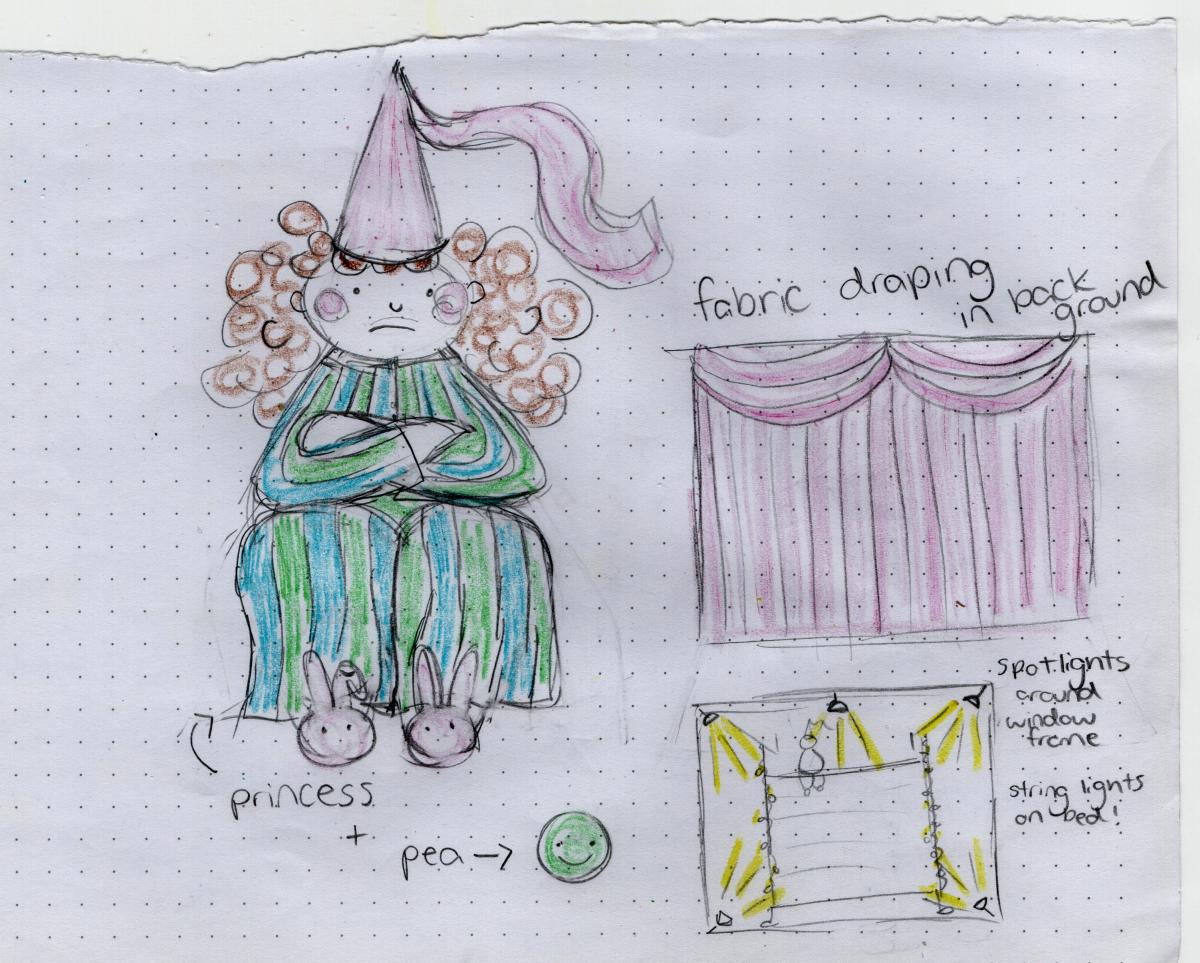 fabric draping
in back
ground
spotlights
around
window
frame
string lights
on bed!
princess
+
pea →